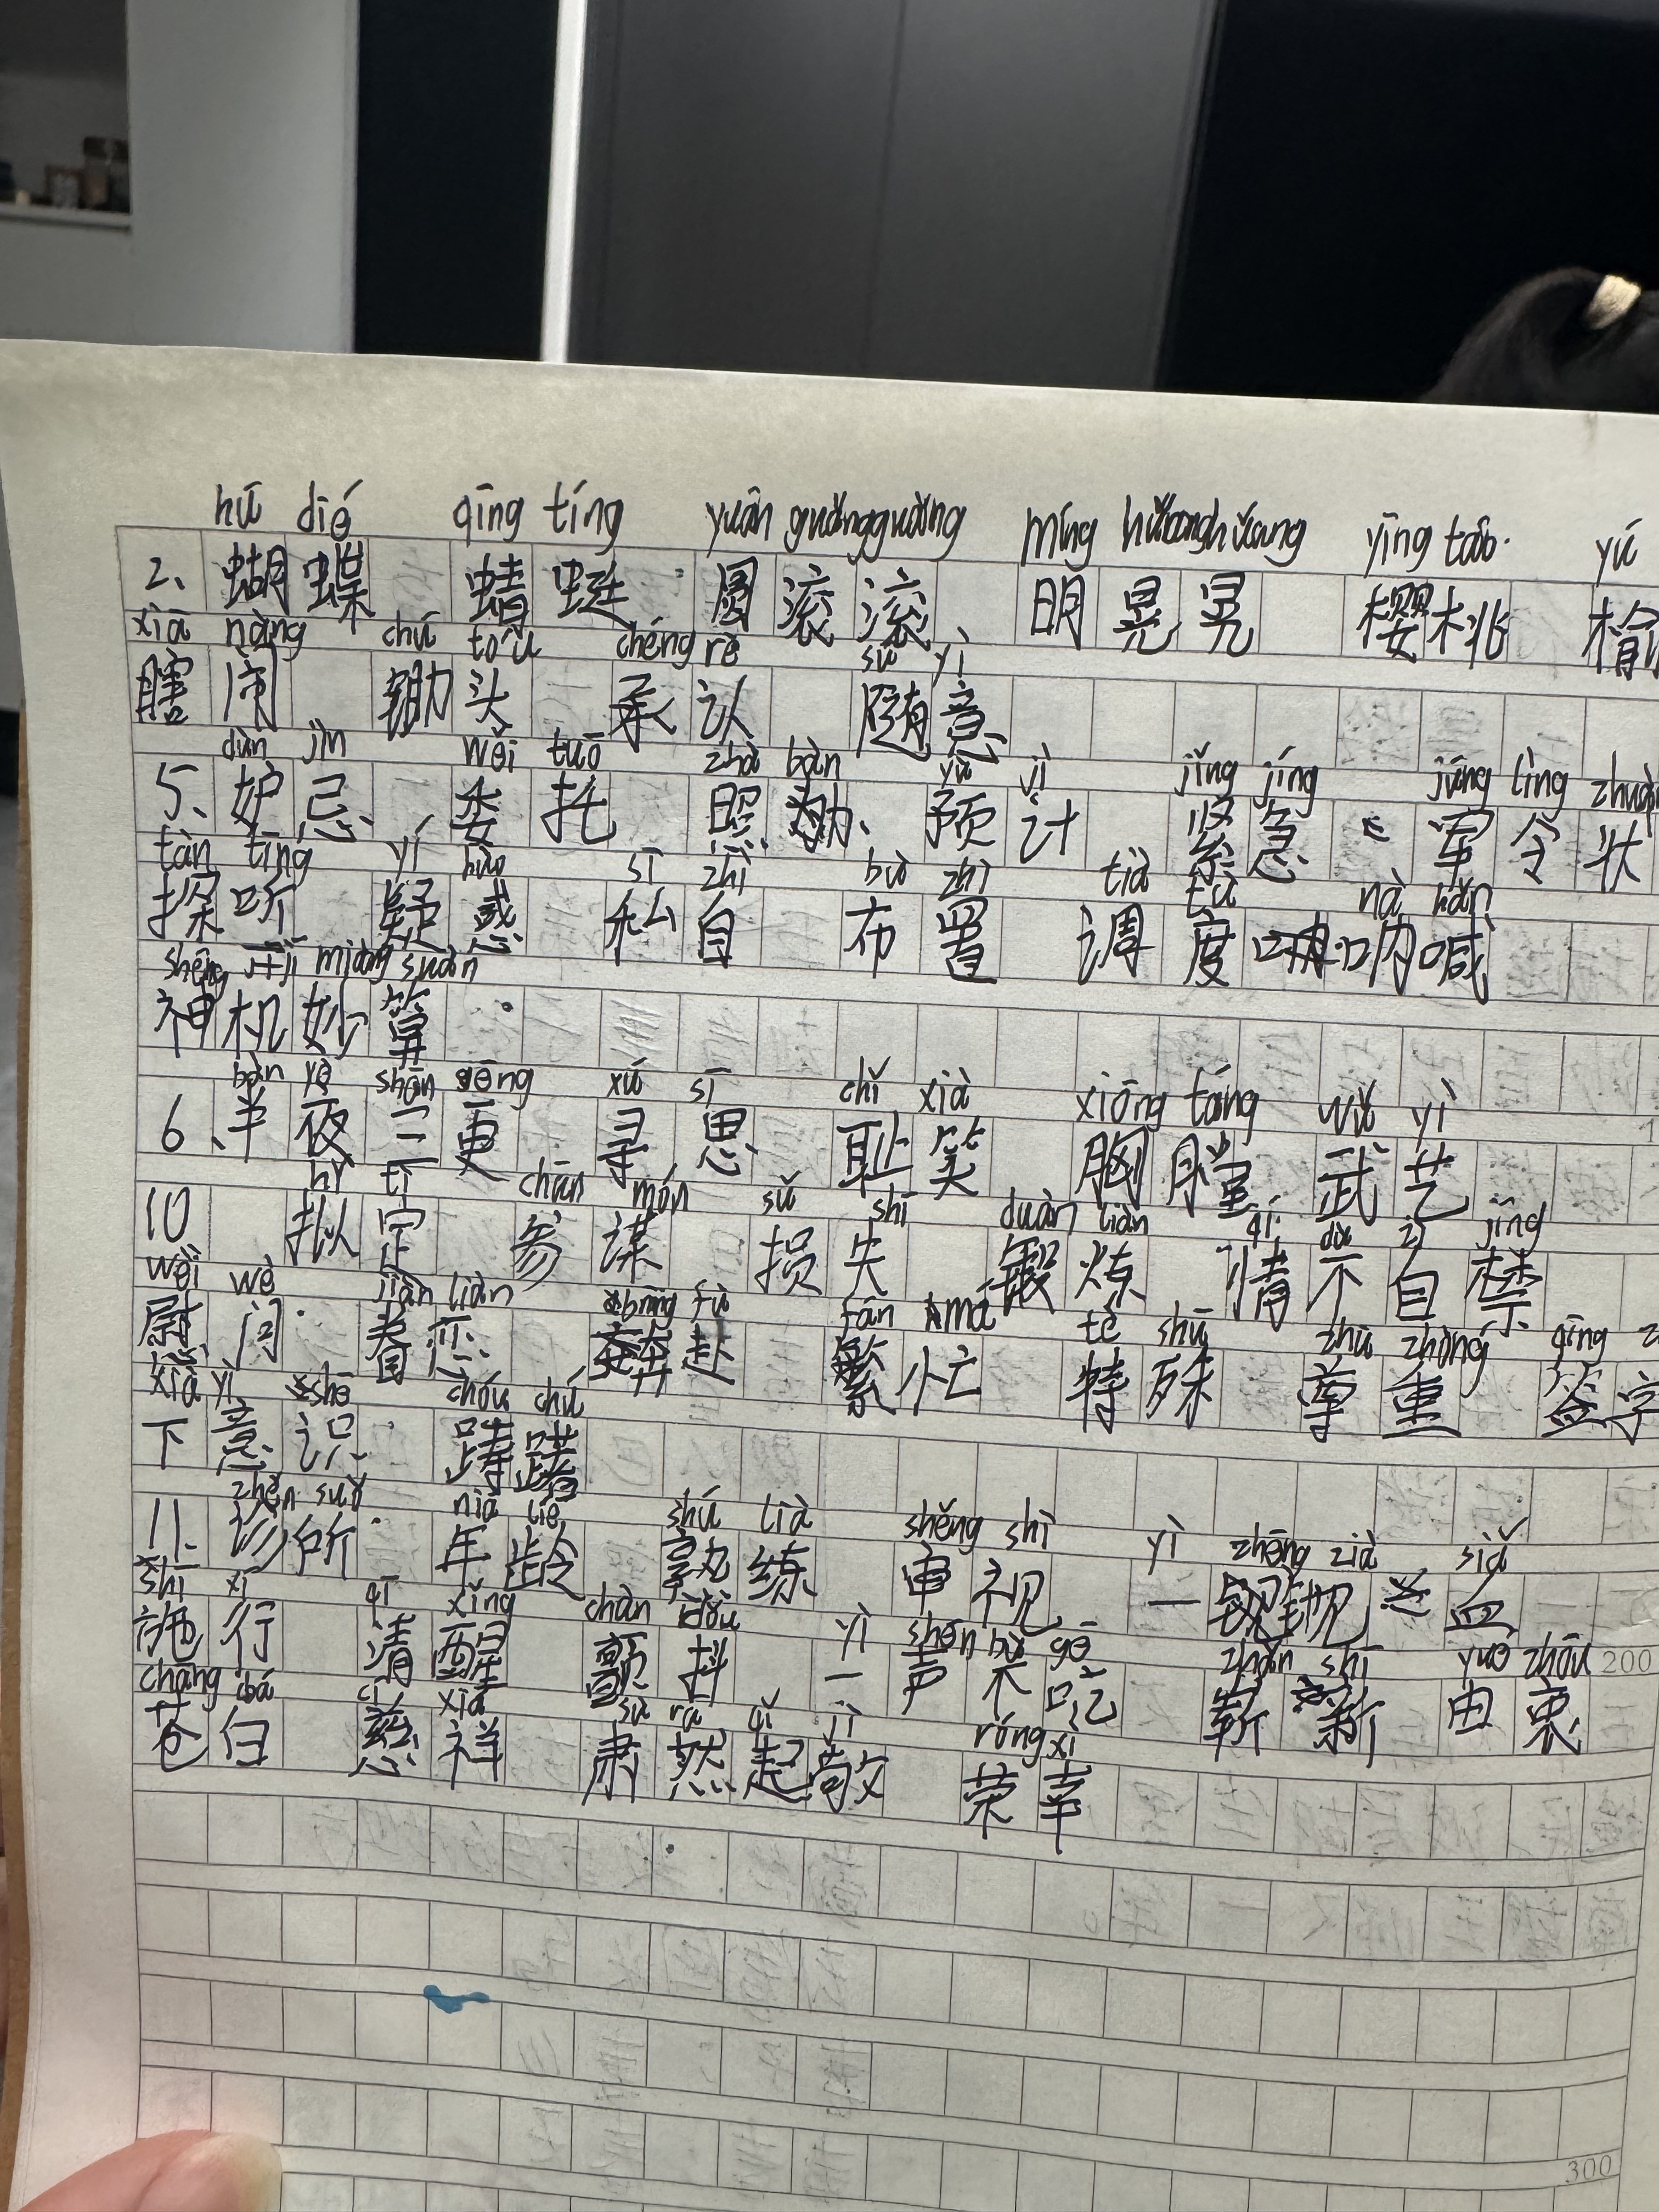 hú dié qīng tíng yuán gǔngǔn míng yīng táo yú
2、蝴蝶 蜻蜓 圆滚滚、明晃晃 樱桃 榆
xiā nàng chú tóu chéng rè suí yì
瞎闹 锄头 承认 随意
dùn jìn wěi tuō zhà bàn yù jì jǐng jíng jūng lìng
5、妒忌、委托 照办、预计 紧急 军令状
tàn tīng yí huò sī zhì bù zhì tià tù nà hǎn
探听 疑惑 私自 布置 调度 呐喊
shéng jī miàng suàn
神机妙算
bàn yè shān gēng xú sī chǐ xià xiōng táng wǔ yì
6、半夜三更 寻思 耻笑 胸膛 武艺
nǐ tì chān món sǔ shī duàn liàn qí dù zì jīng
10 拟定 参谋 损失 锻炼 情不自禁
wèi wè jiàn liàn bēng fù fán má tè shū zhū zhòng qīng
慰问 眷恋 奔赴 繁忙 特殊 尊重 签字
xià yì shē chóu chú
下意识 踌躇
zhěn suǒ niá lié shú lià shěng shì yì zhēng zià siǎ
11、诊所 年龄 熟练 审视 一 血
shī xí qī xǐng chàn dǒu yì shēn bù gē zhǎn shī yuó zhōu 200
施行 清醒 颤抖 一声不吭 崭新 由衷
chāng bá cí xiá sù rá qǐ jì róng xì
苍白 慈祥 肃然起敬 荣幸
300